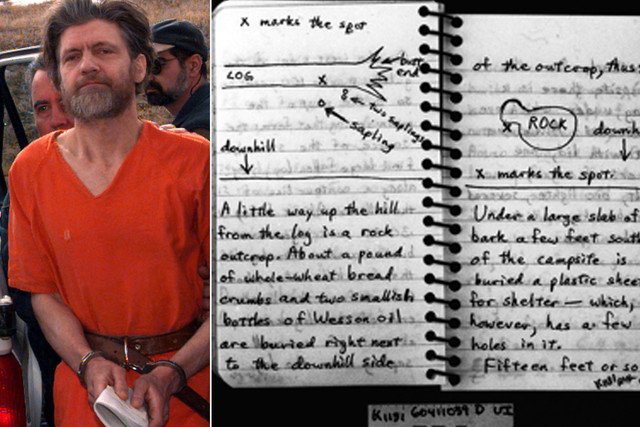 x marks the spot
butt
end
LOG
x
8 ← two saplings
o
sapling
downhill
A little way up the hill
from the log is a rock
outcrop. About a pound
of whole-wheat bread
crumbs and two smallish
bottles of Wesson oil
are buried right next
to the downhill side
of the outcrop, thus:
ROCK
x
downh
x marks the spot.
Under a large slab of
bark a few feet south
of the campsite is
buried a plastic shee
for shelter — which,
however, has a few
holes in it.
Fifteen feet or so